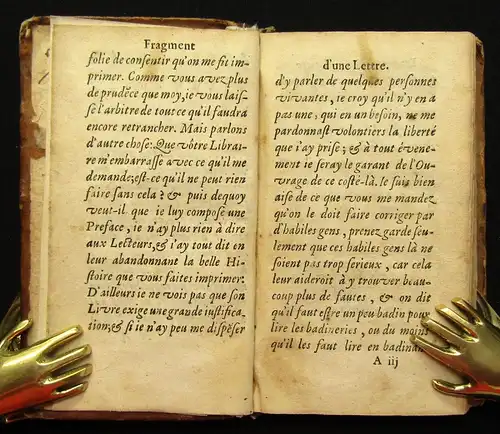 Fragment
folie de consentir qu'on me fit im-
primer. Comme vous avez plus
de prudẽce que moy, ie vous lais-
se l'arbitre de tout ce qu'il faudra
encore retrancher. Mais parlons
d'autre chose: Que vôtre Librai-
re m'embarrasse avec ce qu'il me
demande; est-ce qu'il ne peut rien
faire sans cela? & puis dequoy
veut-il que ie luy compose une
Preface, ie n'ay plus rien à dire
aux Lecteurs, & i'ay tout dit en
leur abandonnant la belle Hi-
stoire que vous faites imprimer.
D'ailleurs ie ne vois pas que son
Livre exige une grande iustifica-
tion; & si ie n'ay peu me dispẽser
d'une Lettre.
d'y parler de quelques personnes
vivantes, ie croy qu'il n'y en a
pas une, qui en un besoin, ne me
pardonnast volontiers la liberté
que i'ay prise; & à tout évene-
ment ie seray le garant de l'Ou-
vrage de ce costé-là. Ie suis bien
aise de ce que vous me mandez
qu'on le doit faire corriger par
d'habiles gens, prenez garde seu-
lement que ces habiles gens là ne
soient pas trop serieux, car cela
leur aideroit à y trouver beau-
coup plus de fautes, & on dit
qu'il faut estre un peu badin pour
lire les badineries, ou du moins
qu'il les faut lire en badinant
A iij